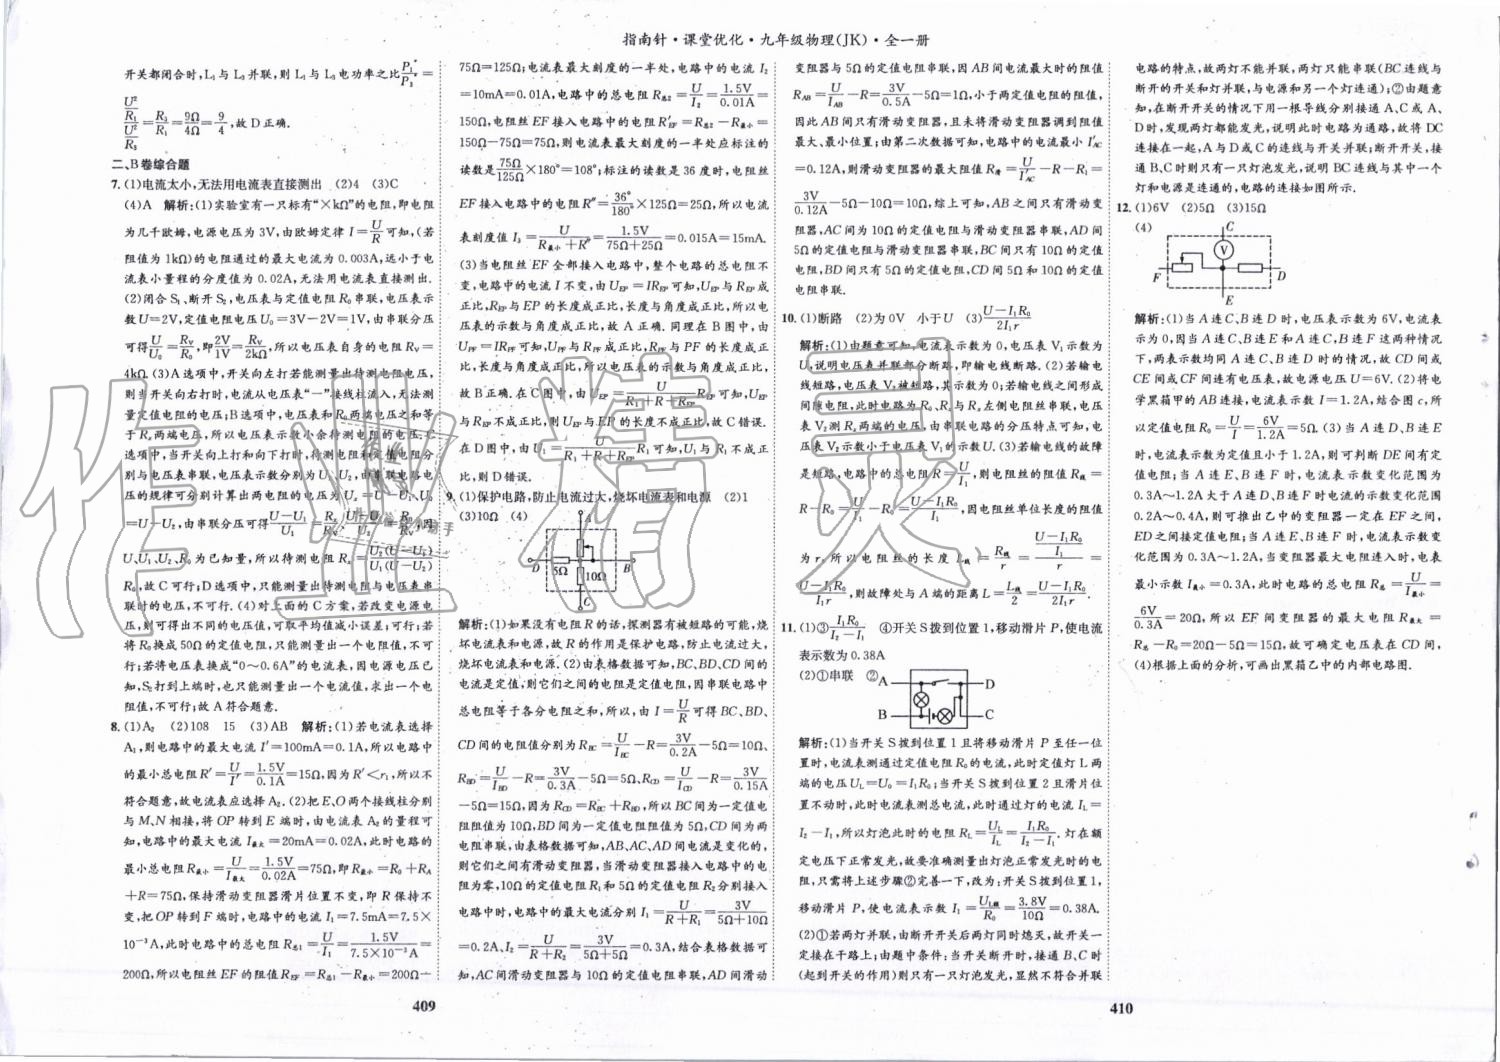 指南针·课堂优化·九年级物理(JK)·全一册
开关都闭合时,L₁与L₃并联,则L₁与L₃电功率之比P₁/P₃=
(U²/R₁)/(U²/R₃)=R₃/R₁=9Ω/4Ω=9/4,故D正确.
二、B卷综合题
7.(1)电流太小,无法用电流表直接测出 (2)4 (3)C
(4)A 解析:(1)实验室有一只标有“×kΩ”的电阻,即电阻
为几千欧姆,电源电压为3V,由欧姆定律I=U/R可知,(若
阻值为1kΩ)的电阻通过的最大电流为0.003A,远小于电
流表小量程的分度值为0.02A,无法用电流表直接测出.
(2)闭合S₁、断开S₂,电压表与定值电阻R₀串联,电压表示
数U=2V,定值电阻电压U₀=3V-2V=1V,由串联分压
可得U/U₀=Rᵥ/R₀,即2V/1V=Rᵥ/2kΩ,所以电压表自身的电阻Rᵥ=
4kΩ.(3)A选项中,开关向左打若能测量出待测电阻电压,
则当开关向右打时,电流从电压表“一”接线柱流入,无法测
量定值电阻的电压;B选项中,电压表和R₀两端电压之和等
于Rₓ两端电压,所以电压表示数小余待测电阻的电压;C
选项中,当开关向上打和向下打时,待测电阻和定值电阻分
别与电压表串联,电压表示数分别为U₁、U₂,由串联电路电
压的规律可分别计算出两电阻的电压为Uₓ=U-U₁、U₀
=U-U₂,由串联分压可得(U-U₁)/U₁=Rₓ/Rᵥ、(U-U₂)/U₂=R₀/Rᵥ,因
U、U₁、U₂、R₀为已知量,所以待测电阻Rₓ=U₂(U-U₁)/U₁(U-U₂)
R₀,故C可行;D选项中,只能测量出待测电阻与电压表串
联时的电压,不可行.(4)对上面的C方案,若改变电源电
压,则可得出不同的电压值,可取平均值减小误差;可行;若
将R₀换成50Ω的定值电阻,只能测量出一个电阻值,不可
行;若将电压表换成“0~0.6A”的电流表,因电源电压已
知,S₂打到上端时,也只能测量出一个电流值,求出一个电
压,不可行;故A符合题意.
8.(1)A₂ (2)108 15 (3)AB 解析:(1)若电流表选择
A₁,则电路中的最大电流I′=100mA=0.1A,所以电路中
的最小总电阻R′=U/I′=1.5V/0.1A=15Ω,因为R′<r₁,所以不
符合题意,故电流表应选择A₂.(2)把E、O两个接线柱分别
与M、N相接,将OP转到E端时,由电流表A₂的量程可
知,电路中的最大电流I最大=20mA=0.02A,此时电路的
最小总电阻R最小=U/I最大=1.5V/0.02A=75Ω,即R最小=R₀+R_A
+R=75Ω,保持滑动变阻器滑片位置不变,即R保持不
变,把OP转到F端时,电路中的电流I₁=7.5mA=7.5×
10⁻³A,此时电路中的总电阻R总1=U/I₁=1.5V/(7.5×10⁻³A)=
200Ω,所以电阻丝EF的阻值R_EF=R总1-R最小=200Ω-
409
75Ω=125Ω;电流表最大刻度的一半处,电路中的电流I₂
=10mA=0.01A,电路中的总电阻R总2=U/I₂=1.5V/0.01A=
150Ω,电阻丝EF接入电路中的电阻R′_EF=R总2-R最小=
150Ω-75Ω=75Ω,则电流表最大刻度的一半处应标注的
读数是75Ω/125Ω×180°=108°;标注的读数是36度时,电阻丝
EF接入电路中的电阻R″=36°/180°×125Ω=25Ω,所以电流
表刻度值I₃=U/(R最小+R″)=1.5V/(75Ω+25Ω)=0.015A=15mA.
(3)当电阻丝EF全部接入电路中,整个电路的总电阻不
变,电路中的电流I不变,由U_EP=IR_EP可知,U_EP与R_EP成
正比,R_EP与EP的长度成正比,长度与角度成正比,所以电
压表的示数与角度成正比,故A正确.同理在B图中,由
U_PF=IR_PF可知,U_PF与R_PF成正比,R_PF与PF的长度成正
比,长度与角度成正比,所以电压表的示数与角度成正比,
故B正确.在C图中,由U_EP=U/(R₁+R+R_EP)R_EP可知,U_EP
与R_EP不成正比,则U_EP与EP的长度不成正比,故C错误.
在D图中,由U₁=U/(R₁+R+R_EP)R₁可知,U₁与R₁不成正
比,则D错误.
9.(1)保护电路,防止电流过大,烧坏电流表和电源 (2)1
(3)10Ω (4)
A
D 5Ω 10Ω B
C
解析:(1)如果没有电阻R的话,探测器有被短路的可能,烧
坏电流表和电源,故R的作用是保护电路,防止电流过大,
烧坏电流表和电源.(2)由表格数据可知,BC、BD、CD间的
电流是定值,则它们之间的电阻是定值电阻,因串联电路中
总电阻等于各分电阻之和,所以,由I=U/R可得BC、BD、
CD间的电阻值分别为R_BC=U/I_BC-R=3V/0.2A-5Ω=10Ω、
R_BD=U/I_BD-R=3V/0.3A-5Ω=5Ω、R_CD=U/I_CD-R=3V/0.15A
-5Ω=15Ω,因为R_CD=R_BC+R_BD,所以BC间为一定值电
阻阻值为10Ω,BD间为一定值电阻阻值为5Ω,CD间为两
电阻串联,由表格数据可知,AB、AC、AD间电流是变化的,
则它们之间有滑动变阻器,当滑动变阻器接入电路中的电
阻为零,10Ω的定值电阻R₁和5Ω的定值电阻R₂分别接入
电路中时,电路中的最大电流分别I₁=U/(R+R₁)=3V/(5Ω+10Ω)
=0.2A,I₂=U/(R+R₂)=3V/(5Ω+5Ω)=0.3A,结合表格数据可
知,AC间滑动变阻器与10Ω的定值电阻串联,AD间滑动
变阻器与5Ω的定值电阻串联,因AB间电流最大时的阻值
R_AB=U/I_AB-R=3V/0.5A-5Ω=1Ω,小于两定值电阻的阻值,
因此AB间只有滑动变阻器,且未将滑动变阻器调到阻值
最大、最小位置;由第二次数据可知,电路中的电流最小I′_AC
=0.12A,则滑动变阻器的最大阻值R滑=U/I′_AC-R-R₁=
3V/0.12A-5Ω-10Ω=10Ω,综上可知,AB之间只有滑动变
阻器,AC间为10Ω的定值电阻与滑动变阻器串联,AD间
5Ω的定值电阻与滑动变阻器串联,BC间只有10Ω的定值
电阻,BD间只有5Ω的定值电阻,CD间5Ω和10Ω的定值
电阻串联.
10.(1)断路 (2)为0V 小于U (3)(U-I₁R₀)/2I₁r
解析:(1)由题意可知,电流表示数为0,电压表V₁示数为
U,说明电压表并联部分断路,即输电线断路.(2)若输电
线短路,电压表V₂被短路,其示数为0;若输电线之间形成
间隙电阻,此时电路为R₀、Rₓ与Rₓ左侧电阻丝串联,电压
表V₂测Rₓ两端的电压,由串联电路的分压特点可知,电
压表V₂示数小于电压表V₁的示数U.(3)若输电线的故障
是短路,电路中的总电阻R=U/I₁,则电阻丝的阻值R线=
U/I₁-R₀=U/I₁-R₀=(U-I₁R₀)/I₁,因电阻丝单位长度的阻值
为r,所以电阻丝的长度L线=R线/r=((U-I₁R₀)/I₁)/r=
(U-I₁R₀)/I₁r,则故障处与A端的距离L=L线/2=(U-I₁R₀)/2I₁r.
11.(1)③I₁R₀/(I₂-I₁) ④开关S拨到位置1,移动滑片P,使电流
表示数为0.38A
(2)①串联 ②
A D
B C
解析:(1)当开关S拨到位置1且将移动滑片P至任一位
置时,电流表测通过定值电阻的电流,此时定值灯L两
端的电压U_L=U₀=I₁R₀;当开关S拨到位置2且滑片位
置不动时,此时电流表测总电流,此时通过灯的电流I_L=
I₂-I₁,所以灯泡此时的电阻R_L=U_L/I_L=I₁R₀/(I₂-I₁).灯在额
定电压下正常发光,故要准确测量出灯泡正常发光时的电
阻,只需将上述步骤②完善一下,改为:开关S拨到位置1,
移动滑片P,使电流表示数I₁=U_L额/R₀=3.8V/10Ω=0.38A.
(2)①若两灯并联,由断开开关后两灯同时熄灭,故开关一
定接在干路上;由题中条件:当开关断开时,接通B、C时
(起到开关的作用)则只有一只灯泡发光,显然不符合并联
电路的特点,故两灯不能并联,两灯只能串联(BC连线与
断开的开关和灯并联,与电源和另一个灯连通);②由题意
知,在断开开关的情况下用一根导线分别接通A、C或A、
D时,发现两灯都能发光,说明此时电路为通路,故将DC
连接在一起,A与D或C的连线与开关并联;断开开关,接
通B、C时则只有一只灯泡发光,说明BC连线与其中一个
灯和电源是连通的,电路的连接如图所示.
12.(1)6V (2)5Ω (3)15Ω
(4)
C
V
F D
E
解析:(1)当A连C、B连D时,电压表示数为6V,电流表
示为0,因当A连C、B连E和A连C、B连F这两种情况
下,两表示数均同A连C、B连D时的情况,故CD间或
CE间或CF间有连有电压表,故电源电压U=6V.(2)将电
学黑箱甲的AB连接,电流表示数I=1.2A,结合图c,所
以定值电阻R₀=U/I=6V/1.2A=5Ω.(3)当A连D、B连E
时,电流表示数为定值且小于1.2A,则可判断DE间有定
值电阻;当A连E、B连F时,电流表示数变化范围为
0.3A~1.2A大于A连D、B连F时电流的示数变化范围
0.2A~0.4A,则可推出乙中的变阻器一定在EF之间,
ED之间接定值电阻;当A连E、B连F时,电流表示数变
化范围为0.3A~1.2A,当变阻器最大电阻连入时,电表
最小示数I最小=0.3A,此时电路的总电阻R总=U/I最小=
6V/0.3A=20Ω,所以EF间变阻器的最大电阻R最大=
R总-R₀=20Ω-5Ω=15Ω,故可确定电压表在CD间,
(4)根据上面的分析,可画出黑箱乙中的内部电路图.
410
作业精灵